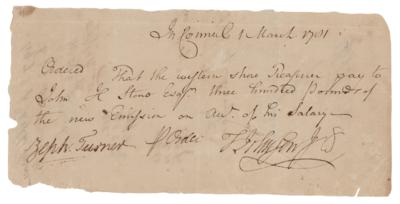 In Council 1 March 1781
Ordered That the western shore Treasurer pay to
John H Stone Esqr three hundred pounds of
the new Emission on Acct. of his Salary
Zeph. Turner p Order T Johnson Jr